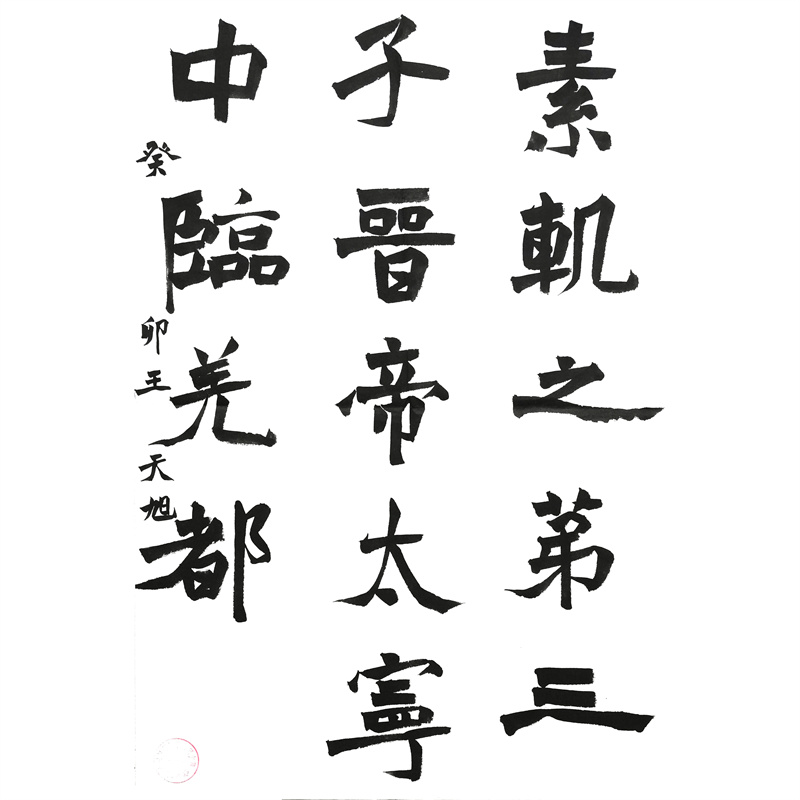 素軌之第三
子晉帝太寧
中臨羌都
癸卯王天旭